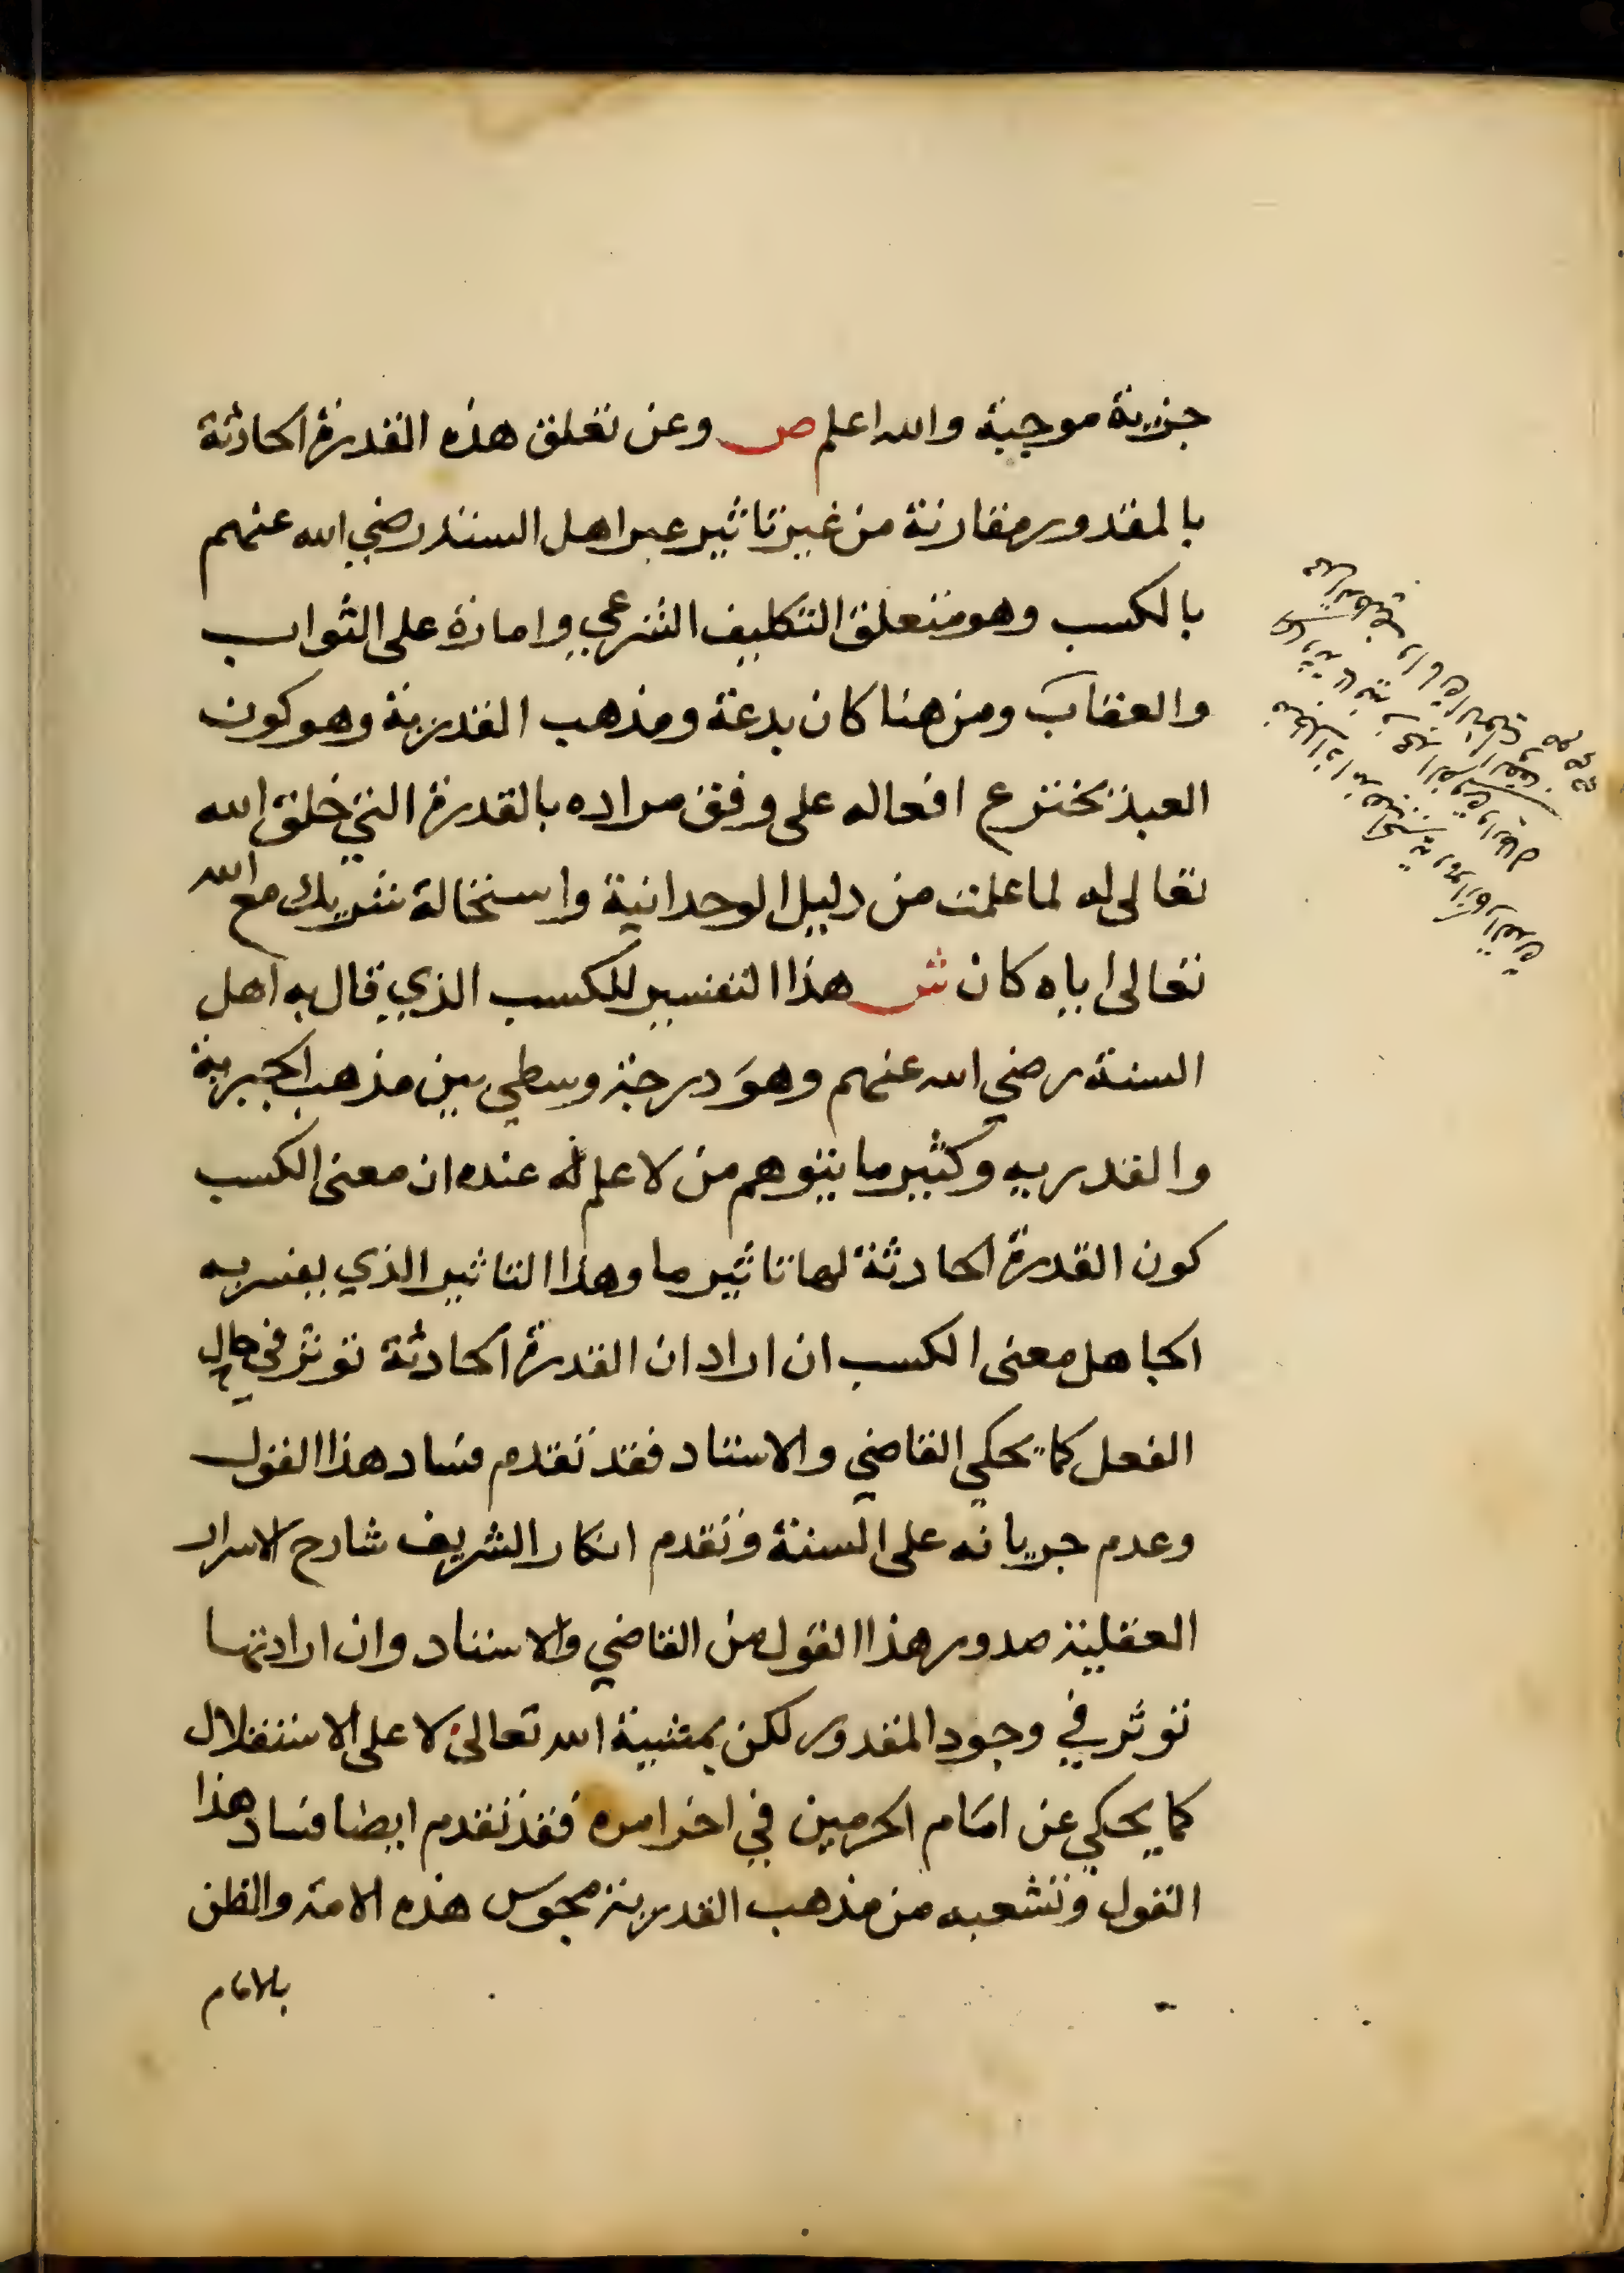 جزيية موجبة والله اعلم ص وعن تعلق هذه القدرة الحادثة
بالمقدور مقارنة من غير تاثير عبر اهل السنة رضي الله عنهم
بالكسب وهو متعلق التكليف الشرعي وامارة على الثواب
والعقاب ومن هنا كان بدعة ومذهب القدرية وهو كون
العبد يخترع افعاله على وفق مراده بالقدرة التي خلق الله
تعالى له لما علمت من دليل الوحدانية واستحالة شريك مع الله
تعالى اياه كان ش هذا التفسير للكسب الذي قال به اهل
السنة رضي الله عنهم وهو درجة وسطي بين مذهب الجبرية
والقدريه وكثير ما يتوهم من لا علم له عنده ان معنى الكسب
كون القدرة الحادثة لها تاثير ما وهذا التاثير الذي يفسر به
الجاهل معنى الكسب ان اراد ان القدرة الحادثة توثر في حال
الفعل كما يحكي القاضي والاستاد فقد تقدم فساد هذا القول
وعدم جريانه على السنة وتقدم انكار الشريف شارح الاسرار
العقلية صدور هذا القول من القاضي والاستاد وان اراد تنها
توثر في وجود المقدور لكن بمشيية الله تعالى لا على الاستقلال
كما يحكي عن امام الحرمين في اخر امره فقد تقدم ايضا فساد هذا
القول وتشعبه من مذهب القدرية مجوس هذه الامة والظن
بالامام